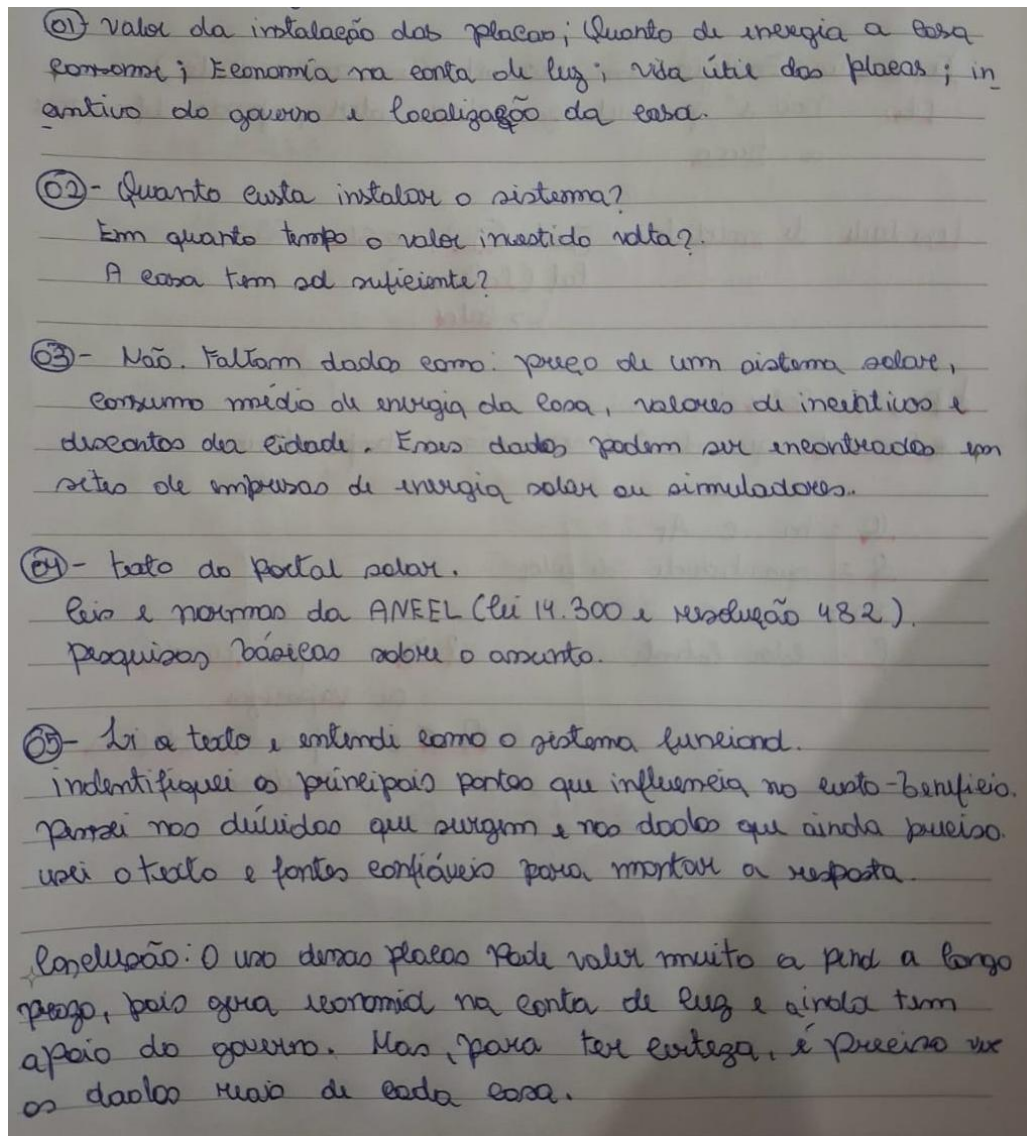 01) valor da instalação das placas; Quanto de energia a casa
consome; Economia na conta de luz; vida útil das placas; in_
centivo do governo e localização da casa.
02 - Quanto custa instalar o sistema?
Em quanto tempo o valor investido volta?
A casa tem sol suficiente?
03 - Não. Faltam dados como: preço de um sistema solar,
consumo médio de energia da casa, valores de incentivos e
descontos da cidade. Esses dados podem ser encontrados em
sites de empresas de energia solar ou simuladores.
04 - texto do portal solar.
leis e normas da ANEEL (lei 14.300 e resolução 482).
pesquisas básicas sobre o assunto.
05 - Li o texto e entendi como o sistema funciona.
indentifiquei os principais pontos que influencia no custo-benefício.
pensei nas dúvidas que surgem e nos dados que ainda preciso.
usei o texto e fontes confiáveis para montar a resposta.
Conclusão: O uso dessas placas Pode valer muito a pena a longo
prazo, pois gera economia na conta de luz e ainda tem
apoio do governo. Mas, para ter certeza, é preciso ver
os dados reais de cada casa.